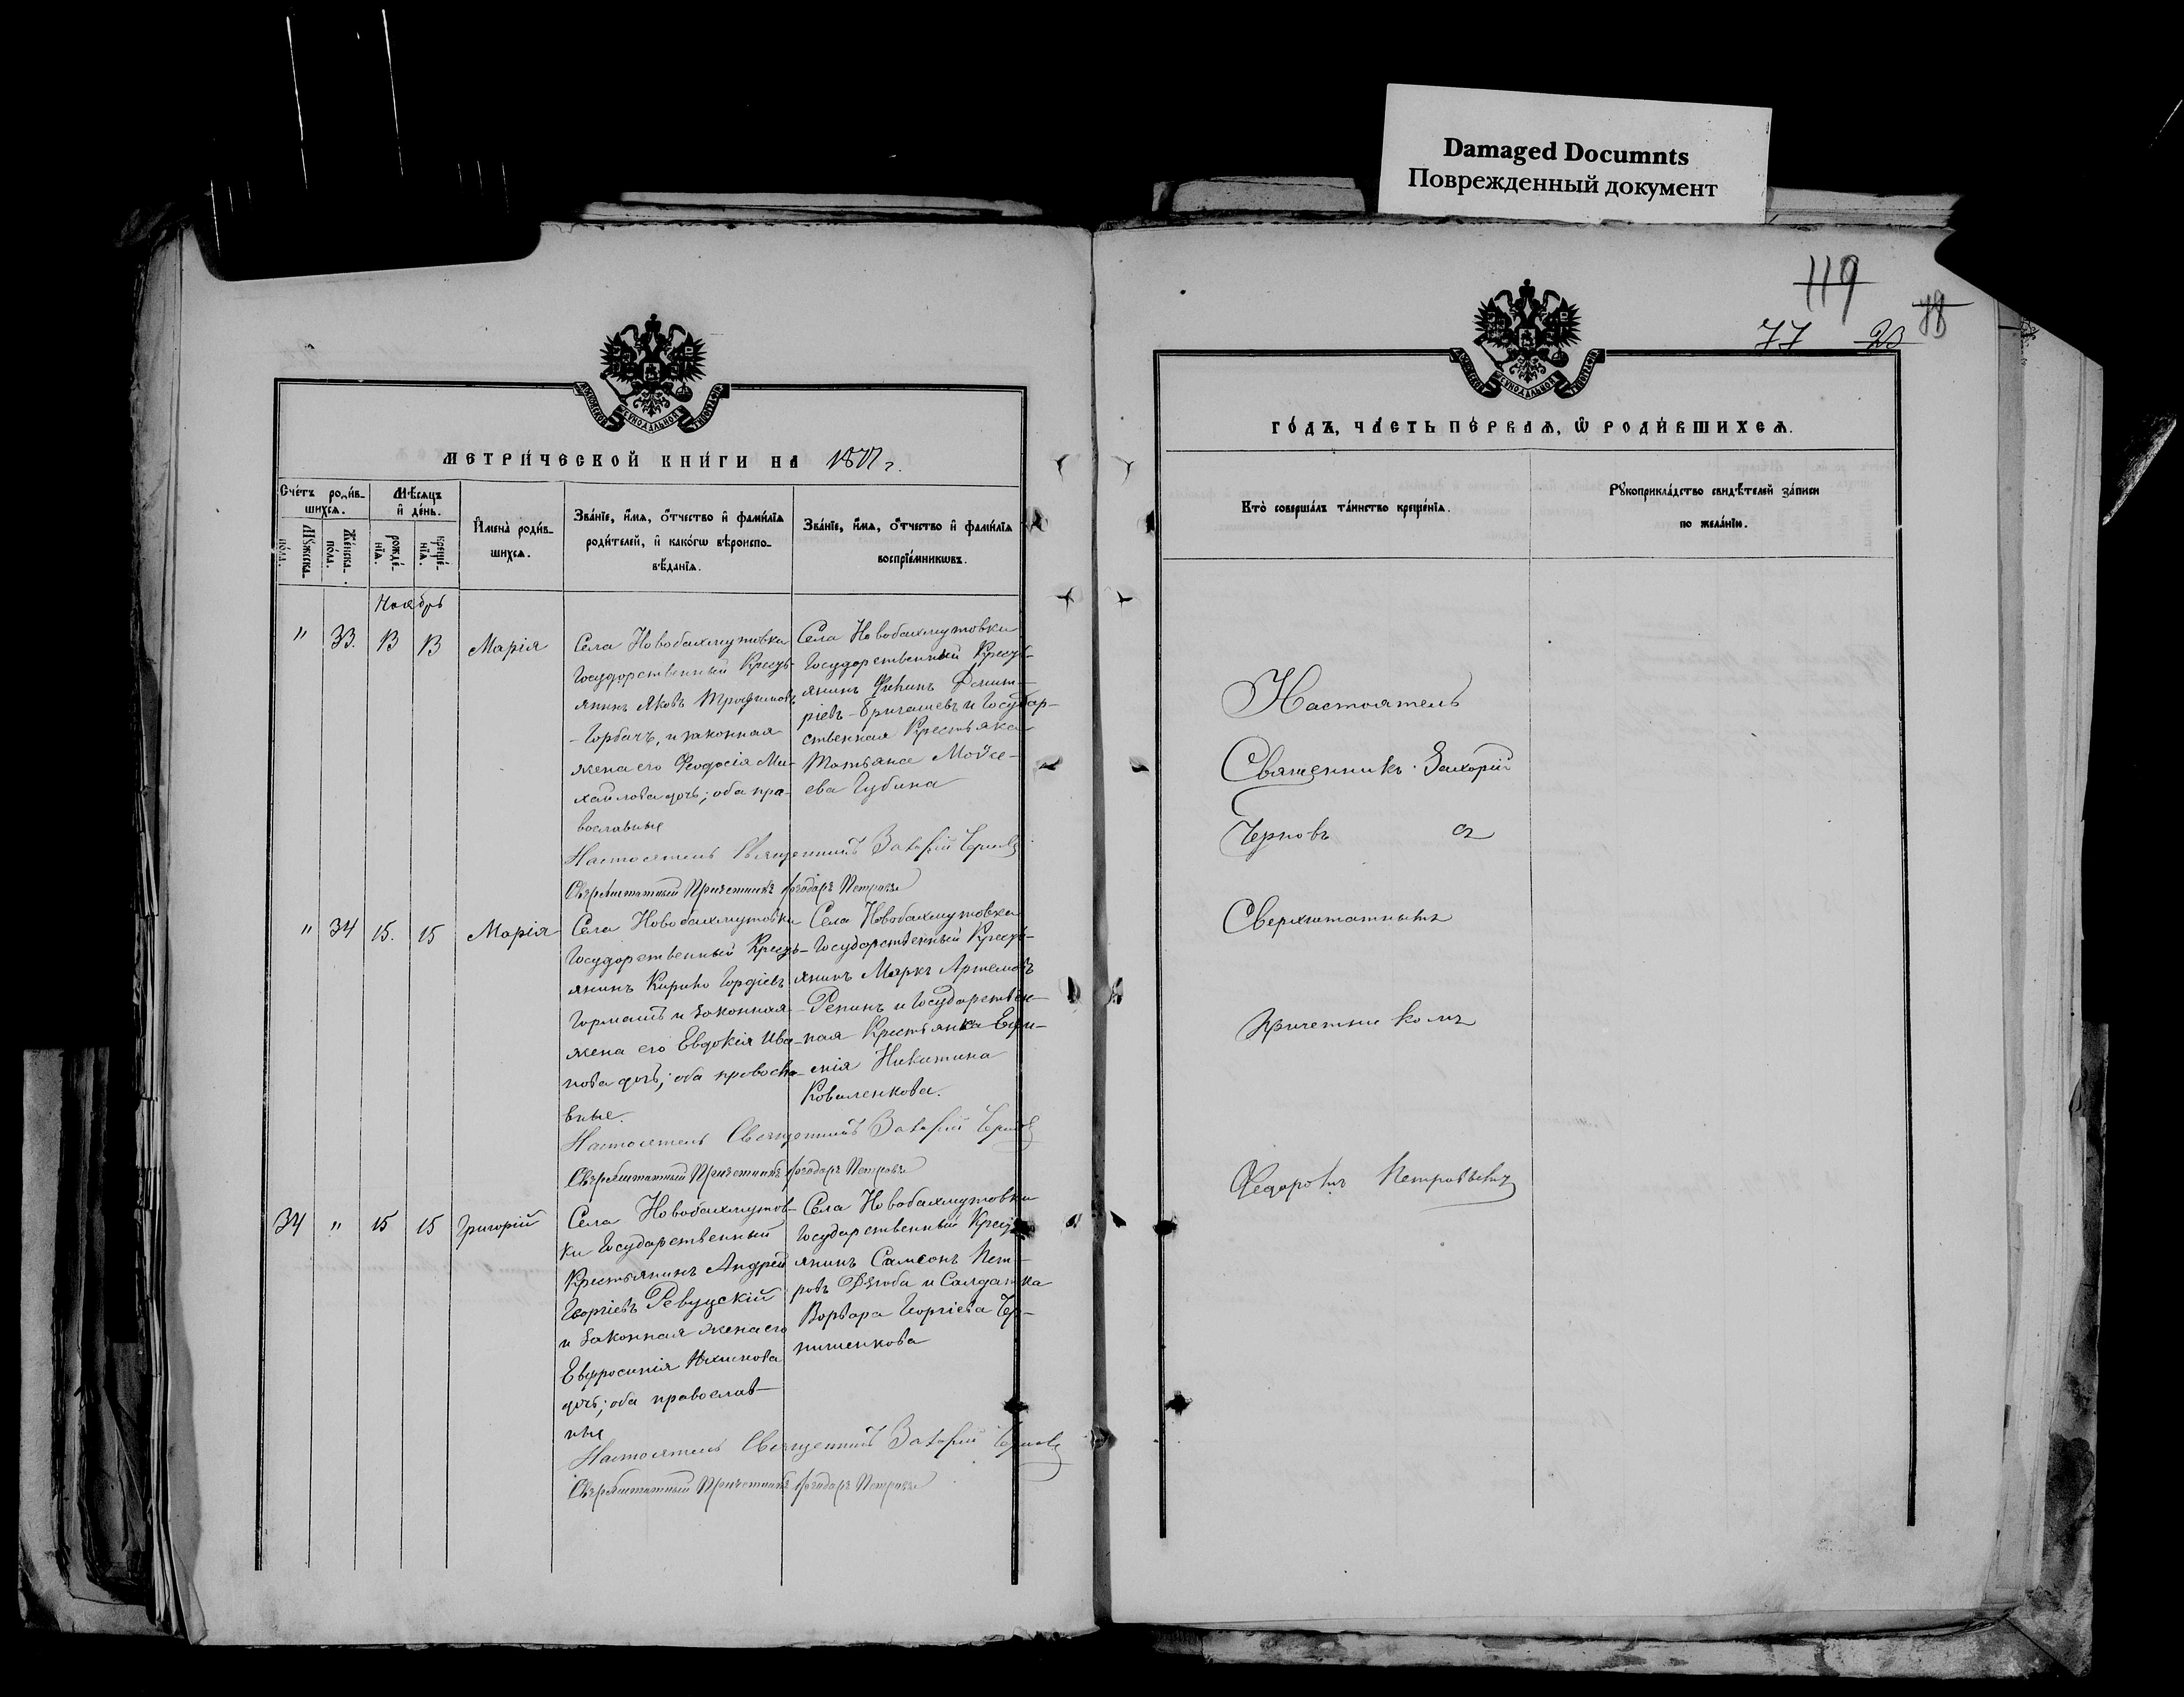 Damaged Documnts
Поврежденный документ
119
77 23 78
МОСКОВСКОЙ СѴНОДАЛЬНОЙ ТИПОГРАФІИ
МЕТРИ́ЧЕСКОЙ КНИ́ГИ НА 1877 г.
Сче́тъ роди́в-
шихсѧ.
Мѹ́жеска-
по́ла.
Же́нска-
по́ла.
Мѣ́сѧцъ
и҆ де́нь.
рожде́-
нїѧ.
креще́-
нїѧ.
И҆мена̀ роди́в-
шихсѧ.
Зва́нїе, и҆́мѧ, ѻ҆́тчество и҆ фами́лїѧ
роди́телей, и҆ како́гѡ вѣроиспо-
вѣ́данїѧ.
Зва́нїе, и҆́мѧ, ѻ҆́тчество и҆ фами́лїѧ
воспрїе́мникѡвъ.
Ноябрь
" 33. 13 13 Марія
Села Новобахмутовки
Государственный Кресть-
янинъ Яковъ Трофимовъ
Горбачъ, и законная
жена его Ѳеодосія Ми-
хайлова дочь; оба пра-
вославные
Села Новобахмутовки
Государственный Кресть-
янинъ Димит-
ріевъ и Государ-
ственная Крестьянка
Татьяна Мойсе-
ева Губина
Настоятель Священникъ Захарій Черновъ
Сверхштатный Причетникъ Ѳеодоръ Петровъ
" 34 15. 15 Марія
Села Новобахмутовки
Государственный Кресть-
янинъ Кирило Гордіевъ
и законная
жена его Евдокія Ива-
нова дочь; оба правосла-
вные.
Села Новобахмутовки
Государственный Кресть-
янинъ Маркъ Артемовъ
Репинъ и Государствен-
ная Крестьянка Евфи-
мія Никитина
Коваленкова.
Настоятель Священникъ Захарій Черновъ
Сверхштатный Причетникъ Ѳеодоръ Петровъ
34 " 15 15 Григорій
Села Новобахмутов-
ки Государственный
Крестьянинъ Андрей
Георгіевъ Ревуцкій
и законная жена его
Евфросинія
дочь; оба православ-
ные
Села Новобахмутовки
Государственный Кресть-
янинъ Самсонъ Пет-
ровъ Дзюба и Салдатка
Варвара Георгіева Чер-
нишенкова
Настоятель Священникъ Захарій Черновъ
Сверхштатный Причетникъ Ѳеодоръ Петровъ
МОСКОВСКОЙ СѴНОДАЛЬНОЙ ТИПОГРАФІИ
ГО́ДЪ, ЧА́СТЬ ПЕ́РВАѦ, Ѡ҆ РОДИ́ВШИХСѦ.
Кто̀ соверша́лъ та́инство креще́нїѧ.
Рѹкоприкла́дство свидѣ́телей за́писи
по жела́нїю.
Настоятель
Священникъ Захарій
Черновъ съ
Сверхштатнымъ
Причетникомъ
Ѳедоромъ Петровымъ